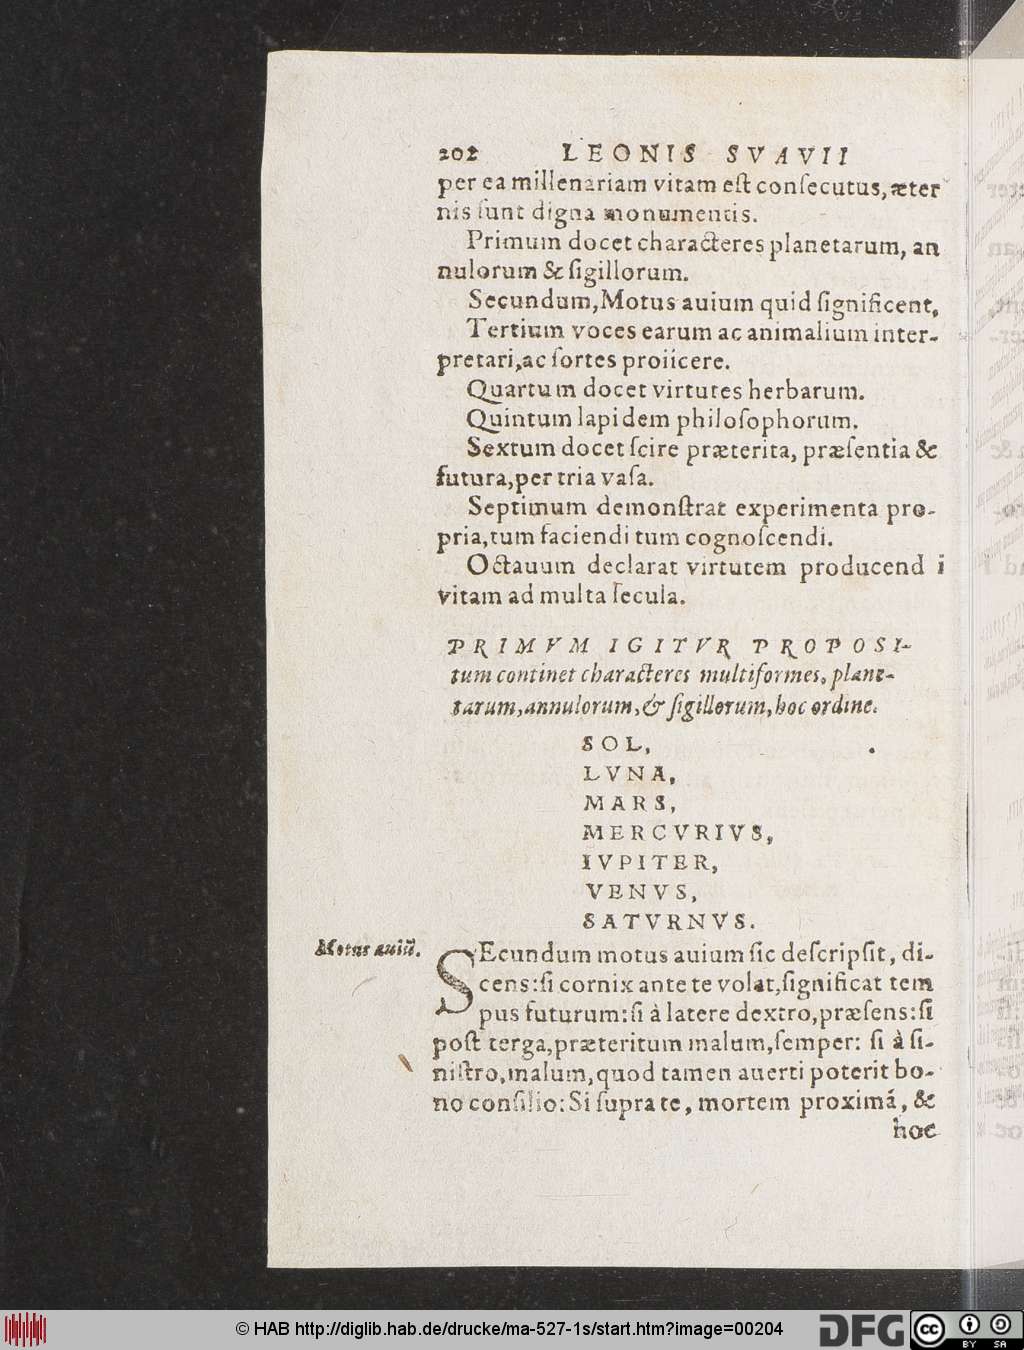 202 LEONIS SVAVII
per ea millenariam vitam eſt conſecutus, æter
nis ſunt digna monumentis.
Primum docet characteres planetarum, an
nulorum & ſigillorum.
Secundum, Motus auium quid ſignificent,
Tertium voces earum ac animalium inter-
pretari, ac ſortes proiicere.
Quartum docet virtutes herbarum.
Quintum lapidem philoſophorum.
Sextum docet ſcire præterita, præſentia &
futura, per tria vaſa.
Septimum demonſtrat experimenta pro-
pria, tum faciendi tum cognoſcendi.
Octauum declarat virtutem producend i
vitam ad multa ſecula.
PRIMVM IGITVR PROPOSI-
tum continet characteres multiformes, plane-
tarum, annulorum, & ſigillorum, hoc ordine.
SOL,
LVNA,
MARS,
MERCVRIVS,
IVPITER,
VENVS,
SATVRNVS.
Motus auiū.
SEcundum motus auium ſic deſcripſit, di-
cens: ſi cornix ante te volat, ſignificat tem
pus futurum: ſi à latere dextro, præſens: ſi
poſt terga, præteritum malum, ſemper: ſi à ſi-
niſtro, malum, quod tamen auerti poterit bo-
no conſilio: Si ſupra te, mortem proximā, &
hoc
© HAB http://diglib.hab.de/drucke/ma-527-1s/start.htm?image=00204
DFG
cc
BY SA